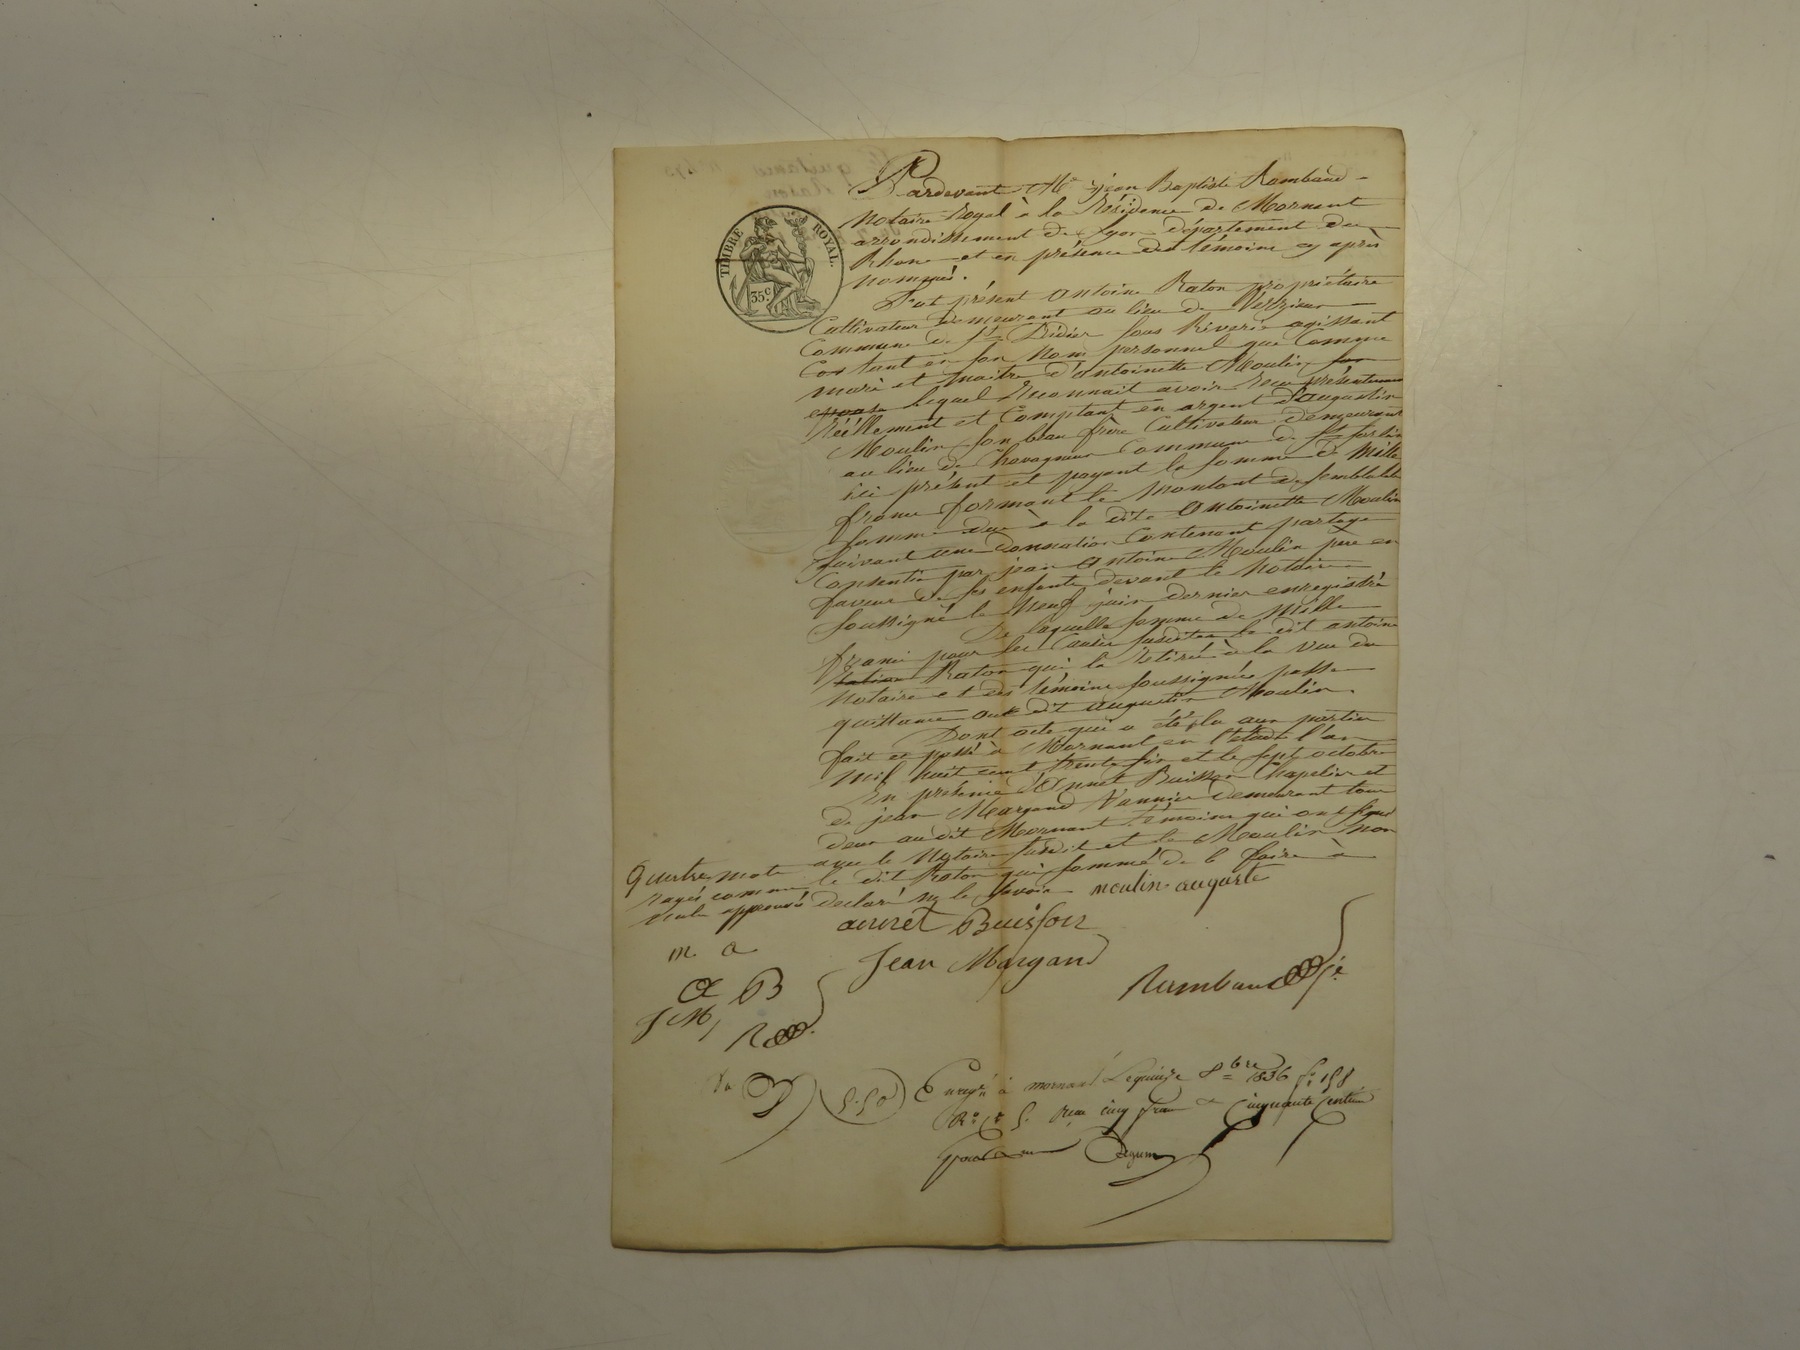 TIMBRE ROYAL.
35c.
Pardevant Me jean Baptiste Rambaud
Notaire Royal à la Résidence de Mornant
arrondissement de Lyon département du
Rhone et en présence des témoins cy après
nommés.
Fut présent Antoine Raton propriétaire
Cultivateur demeurant au lieu de
Commune de St Didier sous Riverie agissant
tant en son nom personnel que comme
mari et maitre d'antoinette Moulin son
epouse lequel Reconnait avoir Reçu présentement
Réellement et Comptant en argent d'augustin
Moulin son beau frère Cultivateur demeurant
au lieu de Chavagneux Commune de St Sorlin
ici présent et payant la somme de Mille
francs formant le montant de semblable
somme due à la dite Antoinette Moulin
suivant une donnation Contenant partage
Consentie par jean Antoine Moulin père en
faveur de ses enfants devant le Notaire
soussigné le Neuf juin dernier enregistré
De laquelle somme de Mille
francs pour les Causes susdites le dit antoine
Raton qui l'a Retirée à la vue du
Notaire et des témoins soussignés passe
quittance au dit augustin Moulin.
Dont acte qui a été lu aux parties
fait et passé à Mornant en l'étude l'an
Mil huit cent trente six et le sept octobre
En présence d'Annet Buisson Chapelier et
de jean Margand Vannier demeurant tous
deux audit Mornant témoins qui ont signé
avec le Notaire susdit et le Moulin non
le dit Raton qui sommé de le faire à
declaré ny le Savoir moulin auguste
Quatre mots
rayés comme
nuls approuvés
annet Buisson
Jean Margand
Rambaud
m. a
A B
J M
R
5.50
Enregé à mornant Le quinze 8bre 1836 fo 158
Ro Ce 5. Reçu cinq francs cinquante centimes